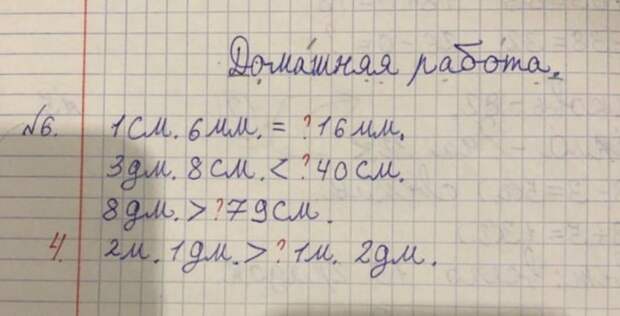 Домашняя работа.
№6. 1см. 6мм. = ?16мм.
3дм. 8см. < ?40см.
8дм. > ?79см.
4. 2м. 1дм. > ? 1м. 2дм.